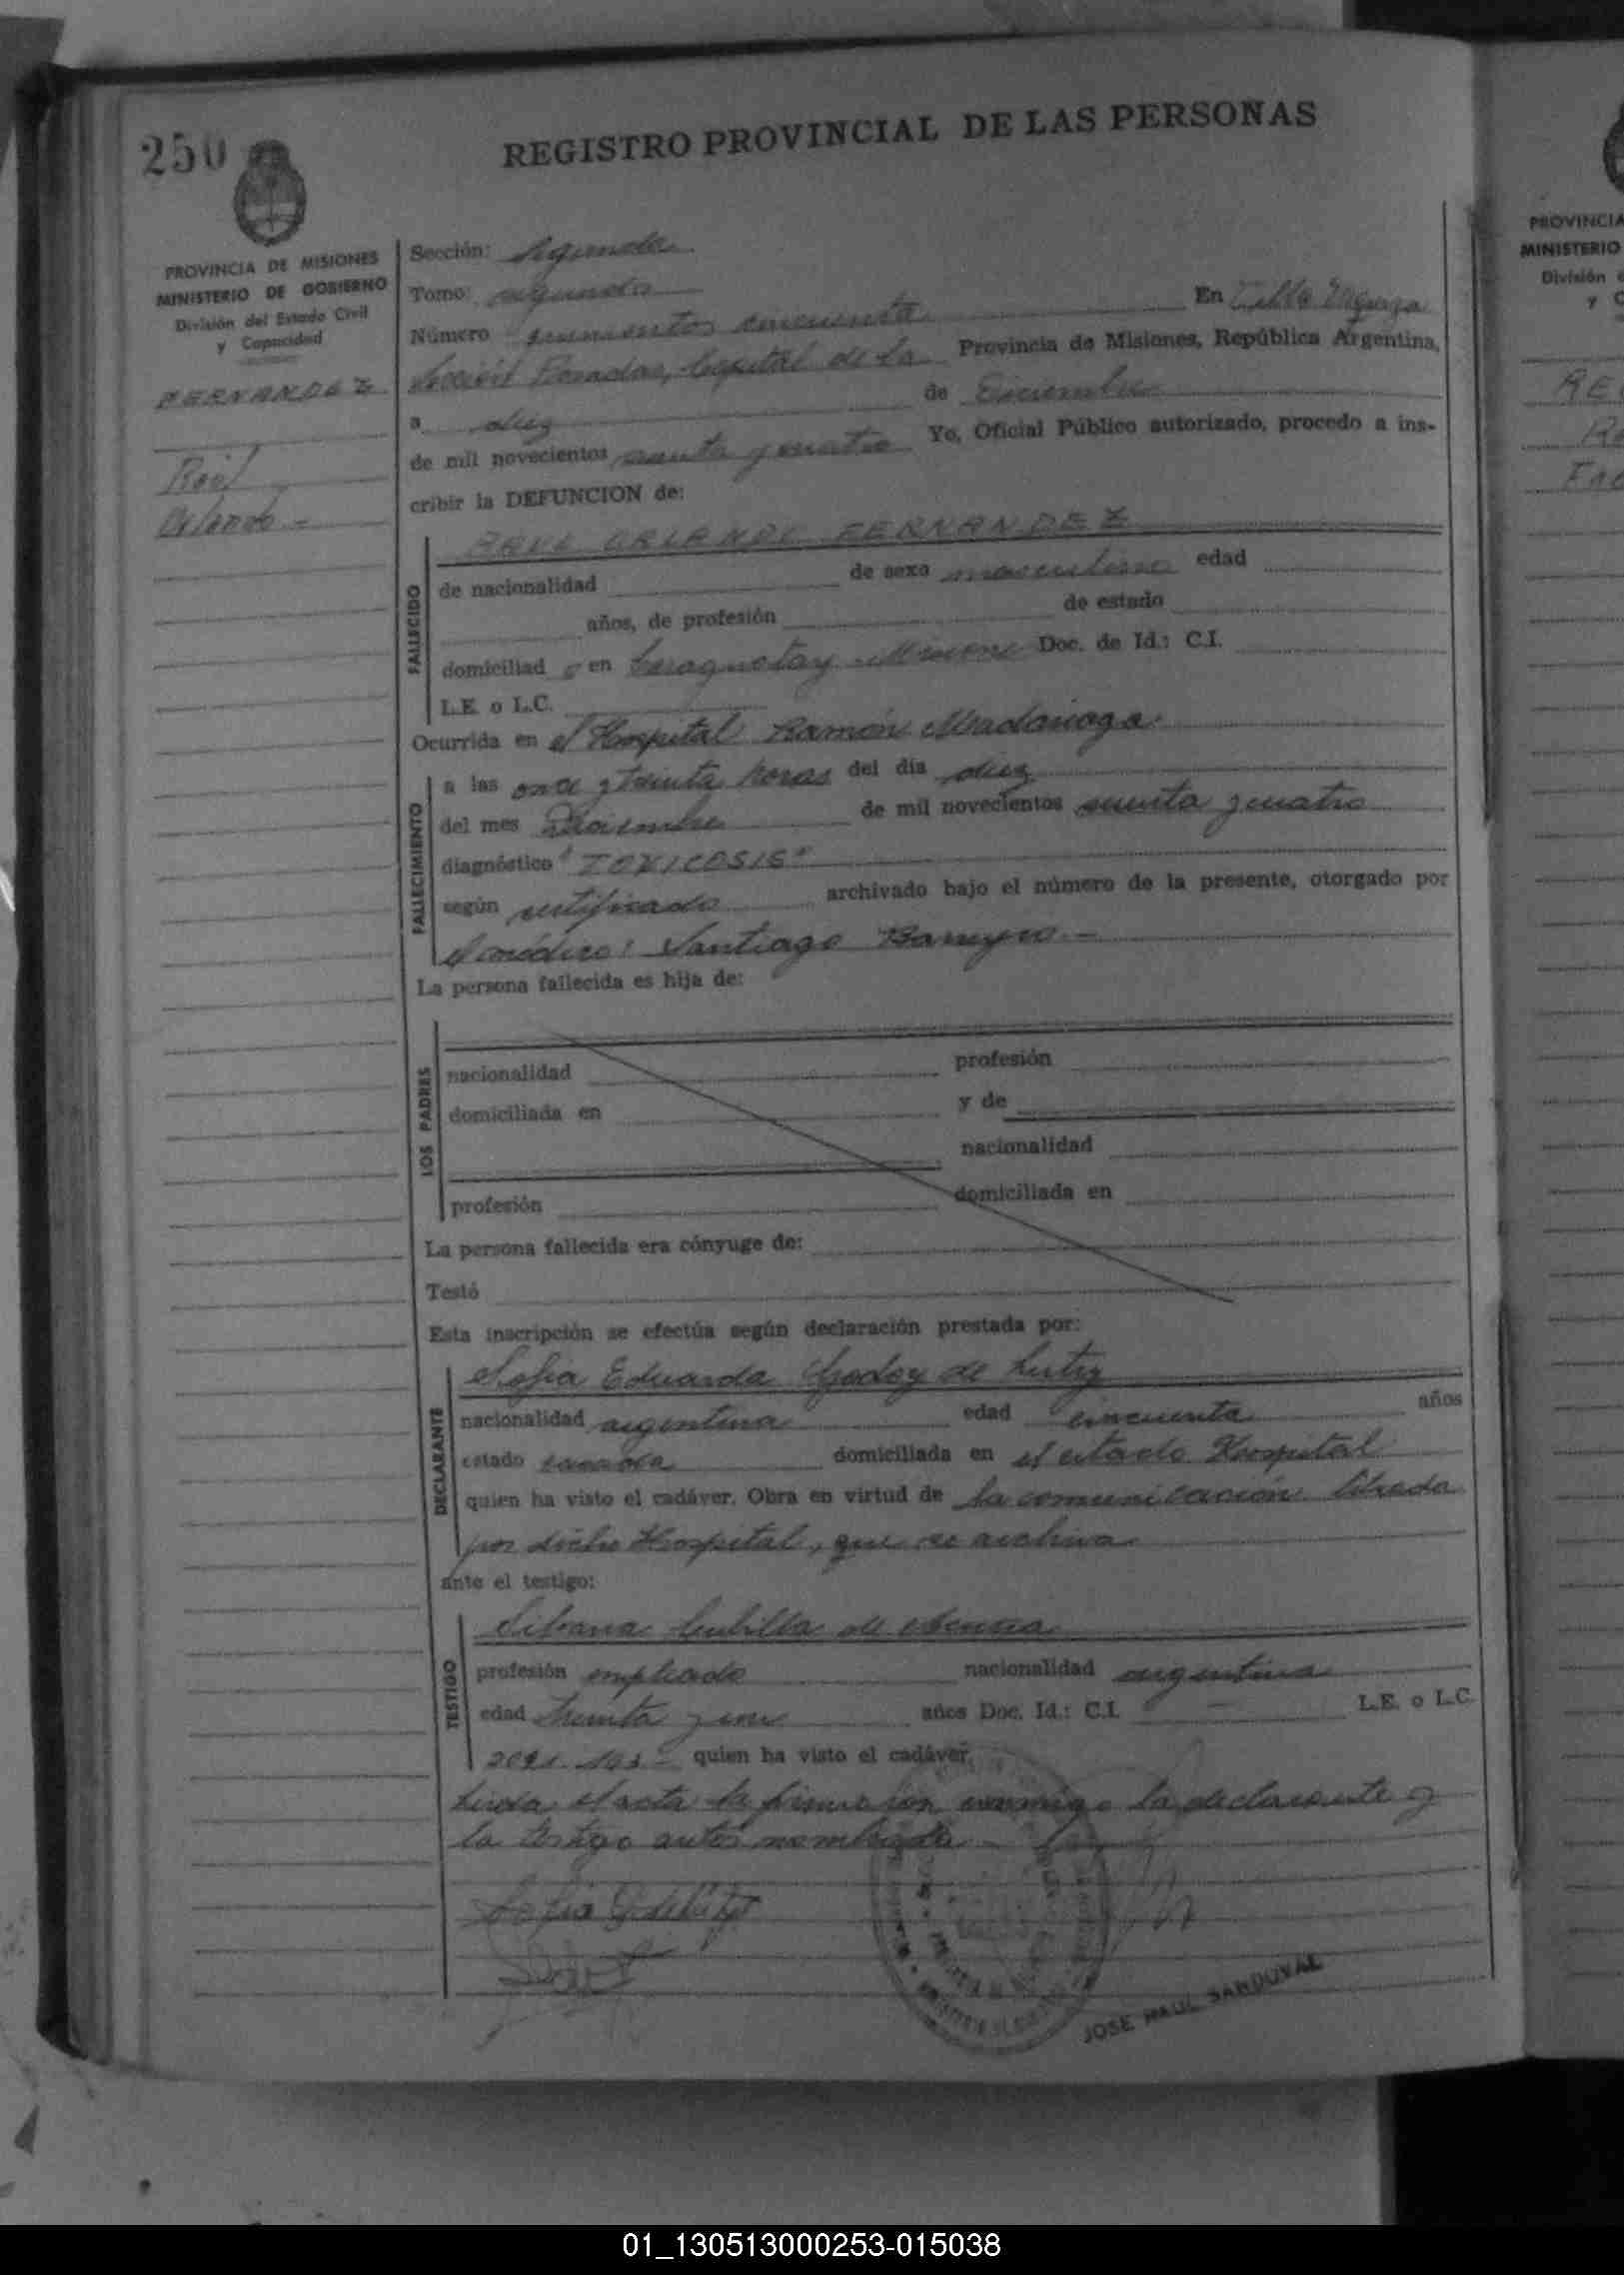 250
REGISTRO PROVINCIAL DE LAS PERSONAS
PROVINCIA DE MISIONES
MINISTERIO DE GOBIERNO
División del Estado Civil
y Capacidad
FERNANDEZ
Raúl
Orlando -
Sección: Segunda
Tomo: segundo
Número quinientos cincuenta En Villa Urquiza
Sección Posadas, Capital de la Provincia de Misiones, República Argentina,
a diez de Diciembre
de mil novecientos sesenta y cuatro Yo, Oficial Público autorizado, procedo a ins-
cribir la DEFUNCION de:
FALLECIDO
RAUL ORLANDO FERNANDEZ
de nacionalidad de sexo masculino edad
años, de profesión de estado
domiciliad o en Caraguatay - Misiones Doc. de Id.: C.I.
L.E. o L.C.
Ocurrida en el Hospital Ramón Madariaga
FALLECIMIENTO
a las once y treinta horas del día diez
del mes Diciembre de mil novecientos sesenta y cuatro
diagnóstico "TOXICOSIS"
según certificado archivado bajo el número de la presente, otorgado por
el médico: Santiago
La persona fallecida es hija de:
LOS PADRES
nacionalidad profesión
domiciliada en y de
nacionalidad
profesión domiciliada en
La persona fallecida era cónyuge de:
Testó
Esta inscripción se efectúa según declaración prestada por:
DECLARANTE
Sofia Eduarda Godoy de
nacionalidad argentina edad cincuenta años
estado casada domiciliada en el citado Hospital
quien ha visto el cadáver. Obra en virtud de la comunicación librada
por dicho Hospital, que se archiva
ante el testigo:
TESTIGO
Silvana Cubilla de
profesión empleada nacionalidad argentina
edad treinta y un años Doc. Id.: C.I. - L.E. o L.C.
quien ha visto el cadáver.
Leida el acta la firman conmigo la declarante y
la testigo antes nombrada -
Sofia G. de
JOSE RAUL SANDOVAL
PROVINCIA
MINISTERIO
División
y
01_130513000253-015038